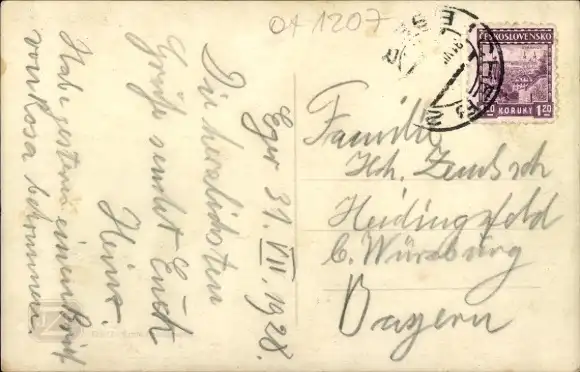 04 1207
Eger 31. VII. 1928.
Die herzlichsten
Grüße sendet Euch
Heinz.
Habe gestern einen Brief
von Rosa bekommen.
ČESKOSLOVENSKO
KORUNY 1.20
Familie
Hch.
Heidingsfeld
b. Würzburg
Bayern